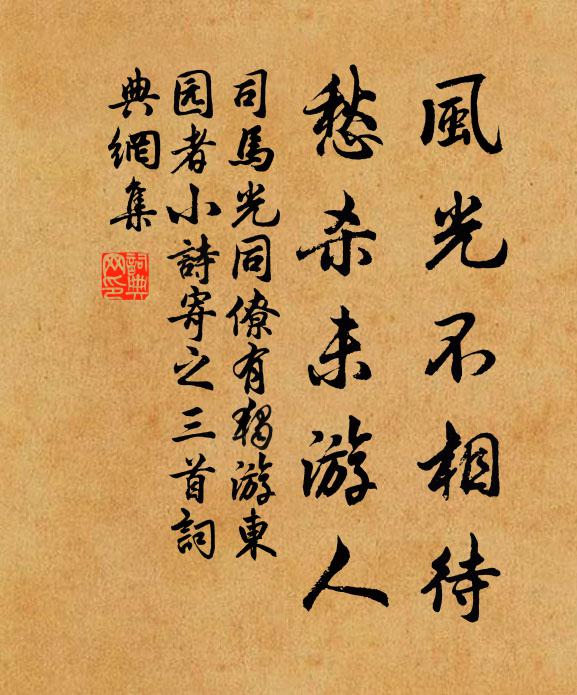 風光不相待
愁杀未游人
司馬光同僚有獨游東
园者小詩寄之三首詞
典網集
詞典
网印